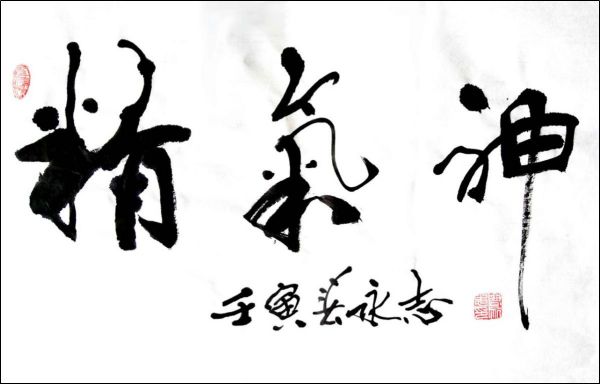 精氣神
壬寅永志